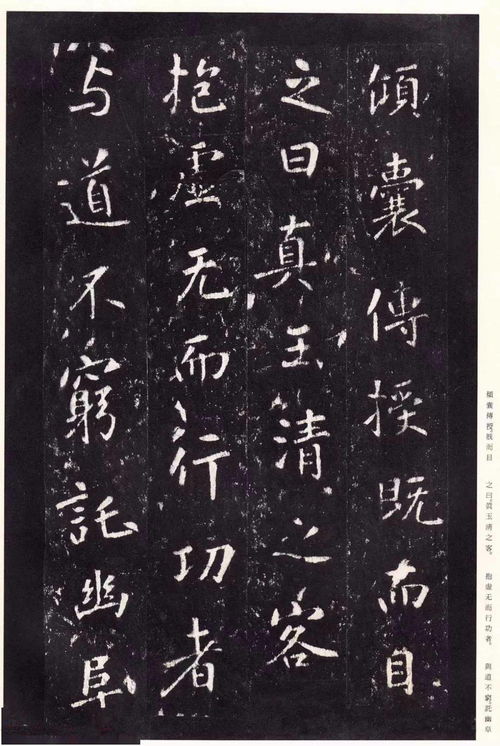 傾囊傳授既而目
之曰真玉清之客
抱虛无而行功者
与道不窮託幽阜
傾囊傳授,既而目 之曰:真玉清之客。 抱虛无而行功者, 與道不窮,託幽阜